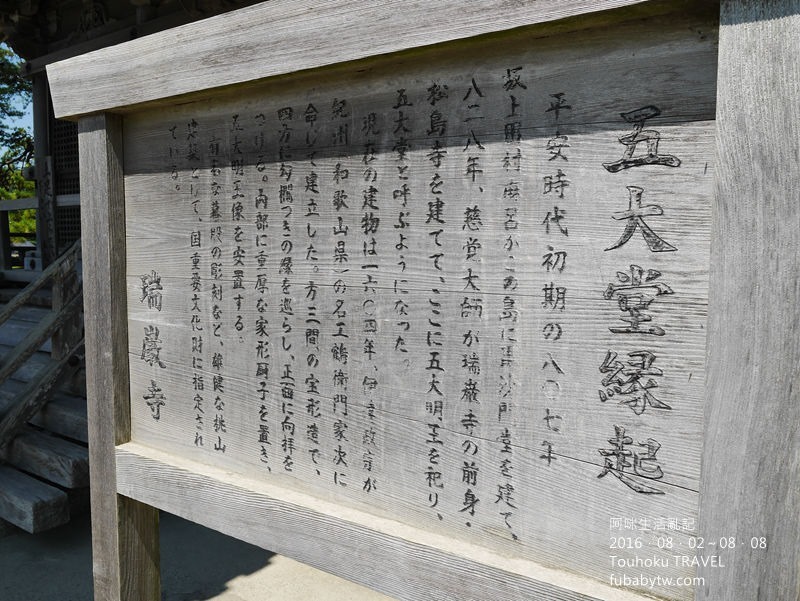 五大堂縁起
平安時代初期の八〇七年
坂上田村麻呂がこの島に毘沙門堂を建て、
八二八年、慈覚大師が瑞巌寺の前身・
松島寺を建てて、ここに五大明王を祀り、
五大堂と呼ぶようになった。
現在の建物は一六〇四年、伊達政宗が
紀州(和歌山県)の名工鶴衛門家次に
命じて建立した。方三間の宝形造で、
四方に勾欄つきの縁を巡らし、正面に向拝を
つける。内部に重厚な家形厨子を置き、
五大明王像を安置する。
蟇股の彫刻など、雄健な桃山
建築として、国重要文化財に指定され
ている。
瑞巌寺
阿咪生活亂記
2016・08・02~08・08
Touhoku TRAVEL
fubabytw.com